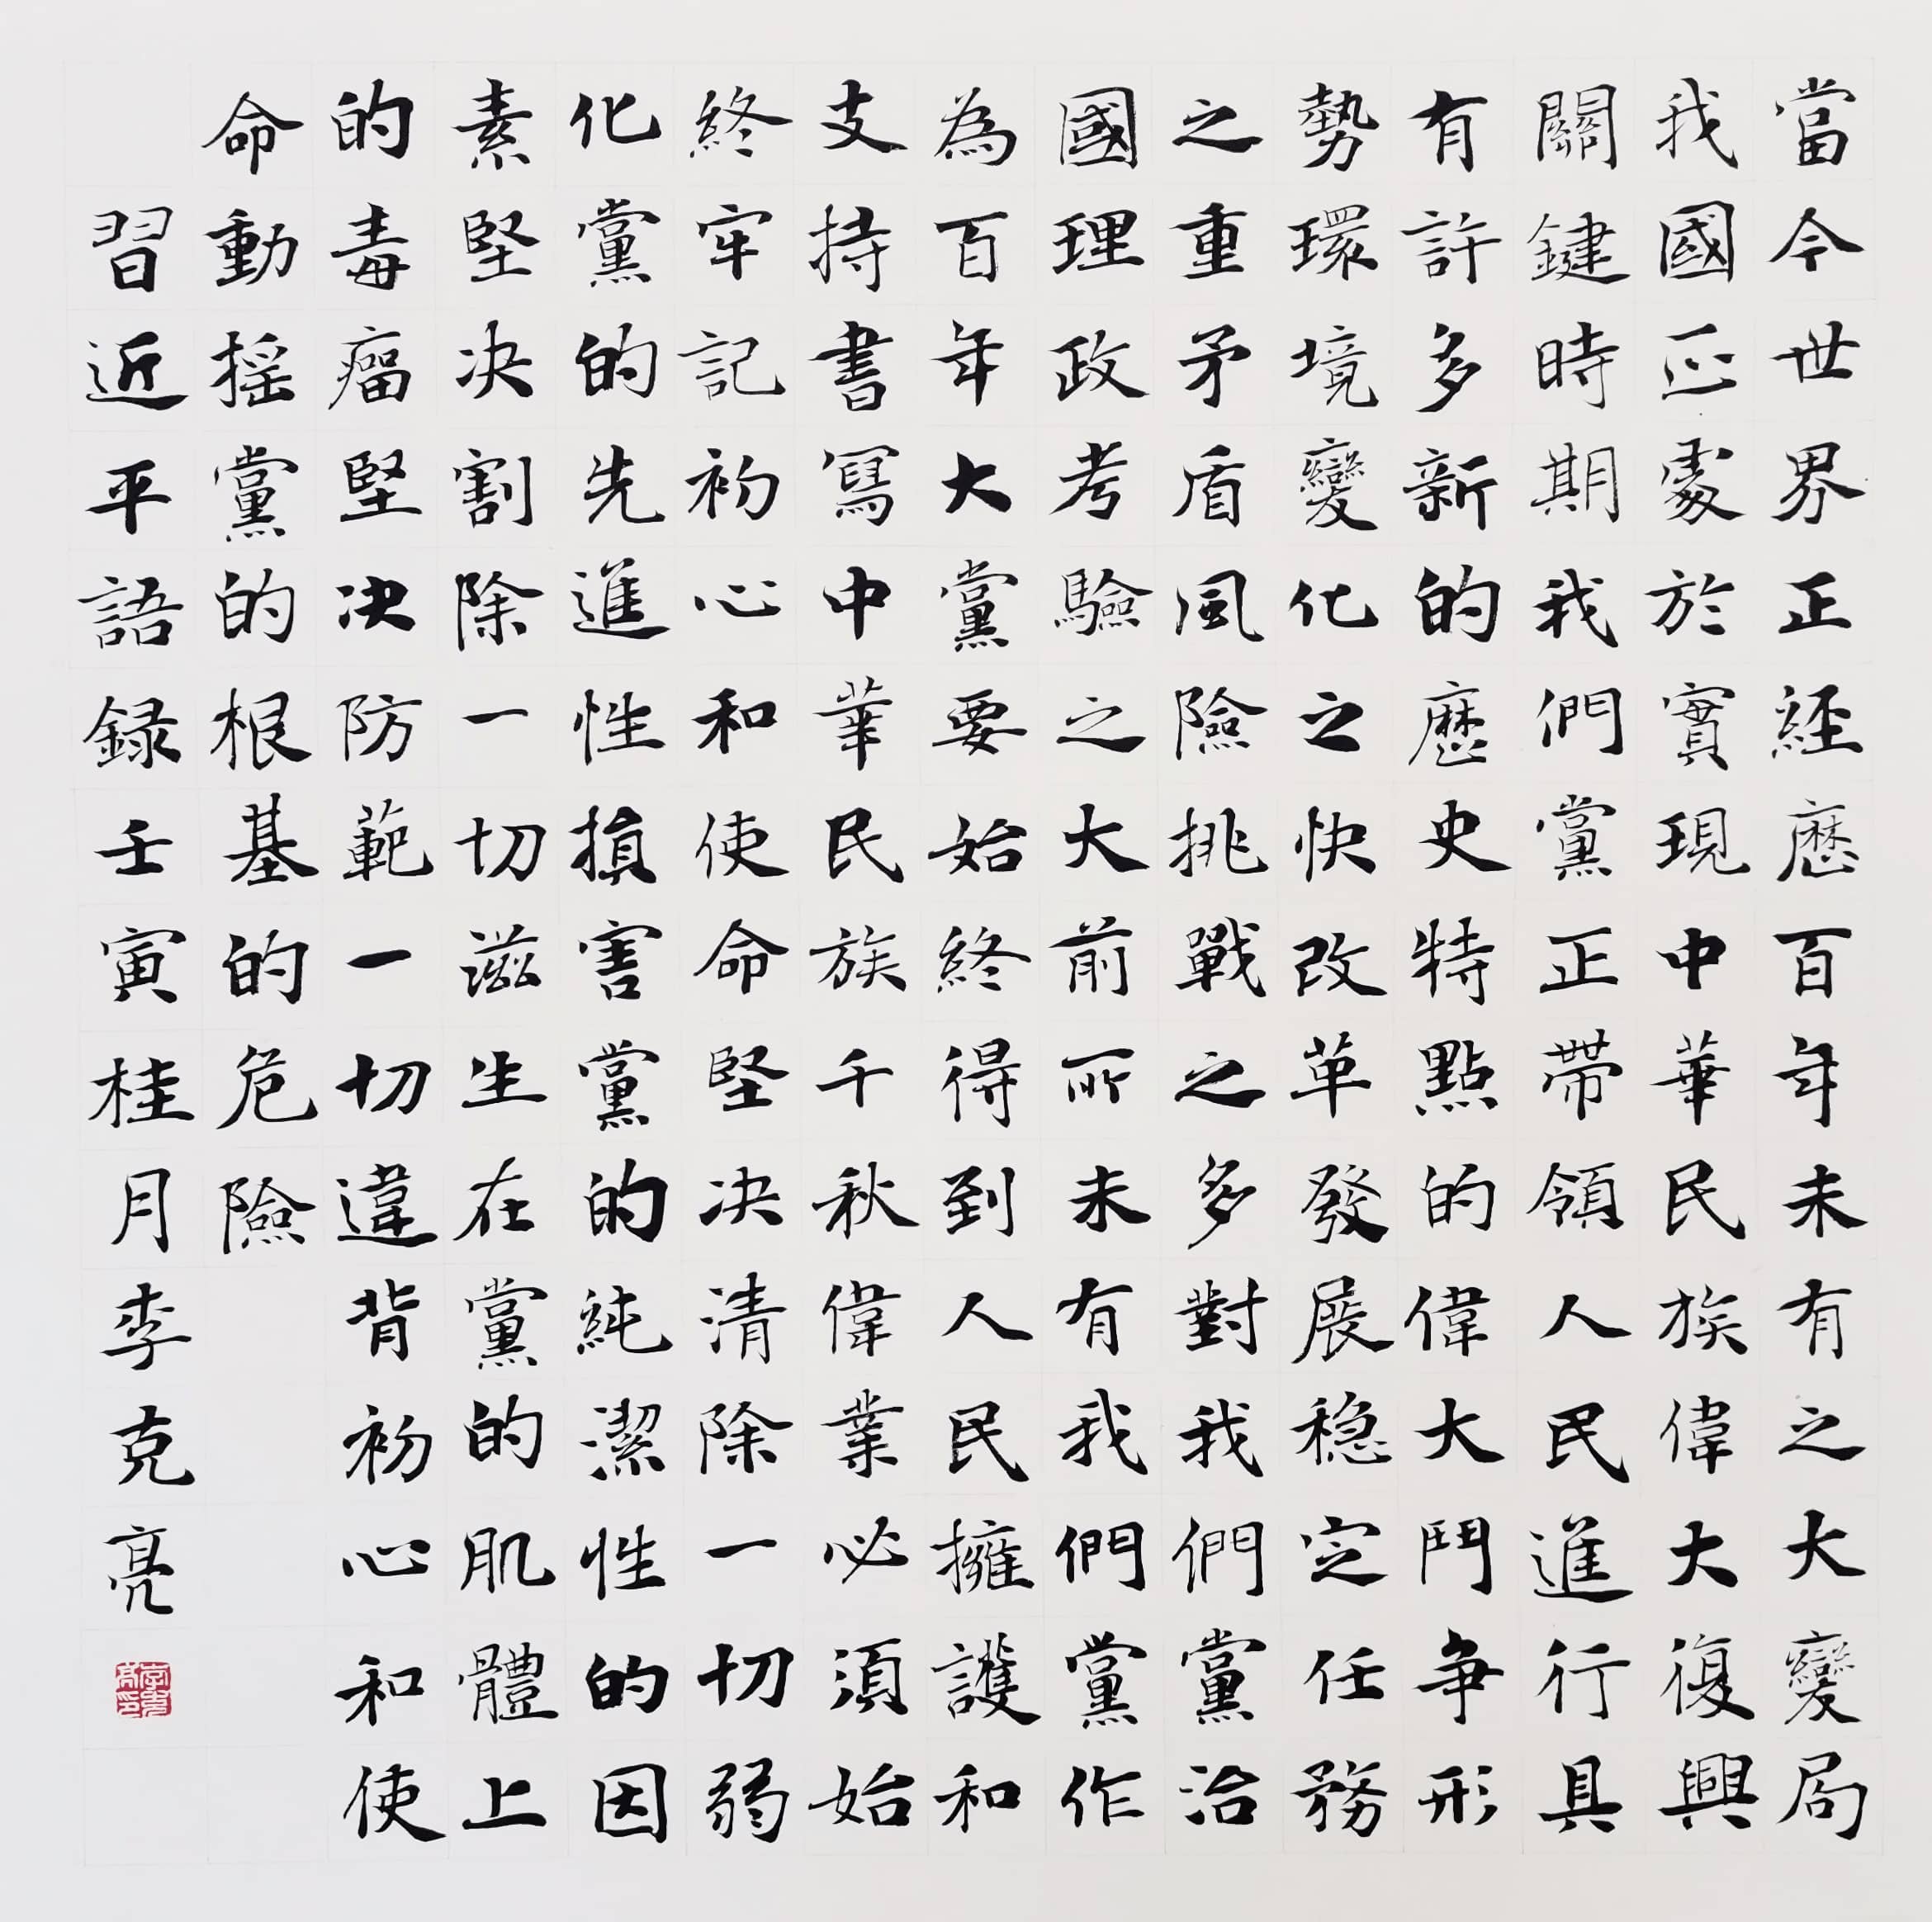 當今世界正經歷百年未有之大變局
我國正處於實現中華民族偉大復興
關鍵時期我們黨正帶領人民進行具
有許多新的歷史特點的偉大鬥争形
勢環境變化之快改革發展穩定任務
之重矛盾風險挑戰之多對我們黨治
國理政考驗之大前所未有我們黨作
為百年大黨要始終得到人民擁護和
支持書寫中華民族千秋偉業必須始
終牢記初心和使命堅决清除一切弱
化黨的先進性損害黨的純潔性的因
素堅决割除一切滋生在黨的肌體上
的毒瘤堅决防範一切違背初心和使
命動摇黨的根基的危險
習近平語録壬寅桂月李克亮